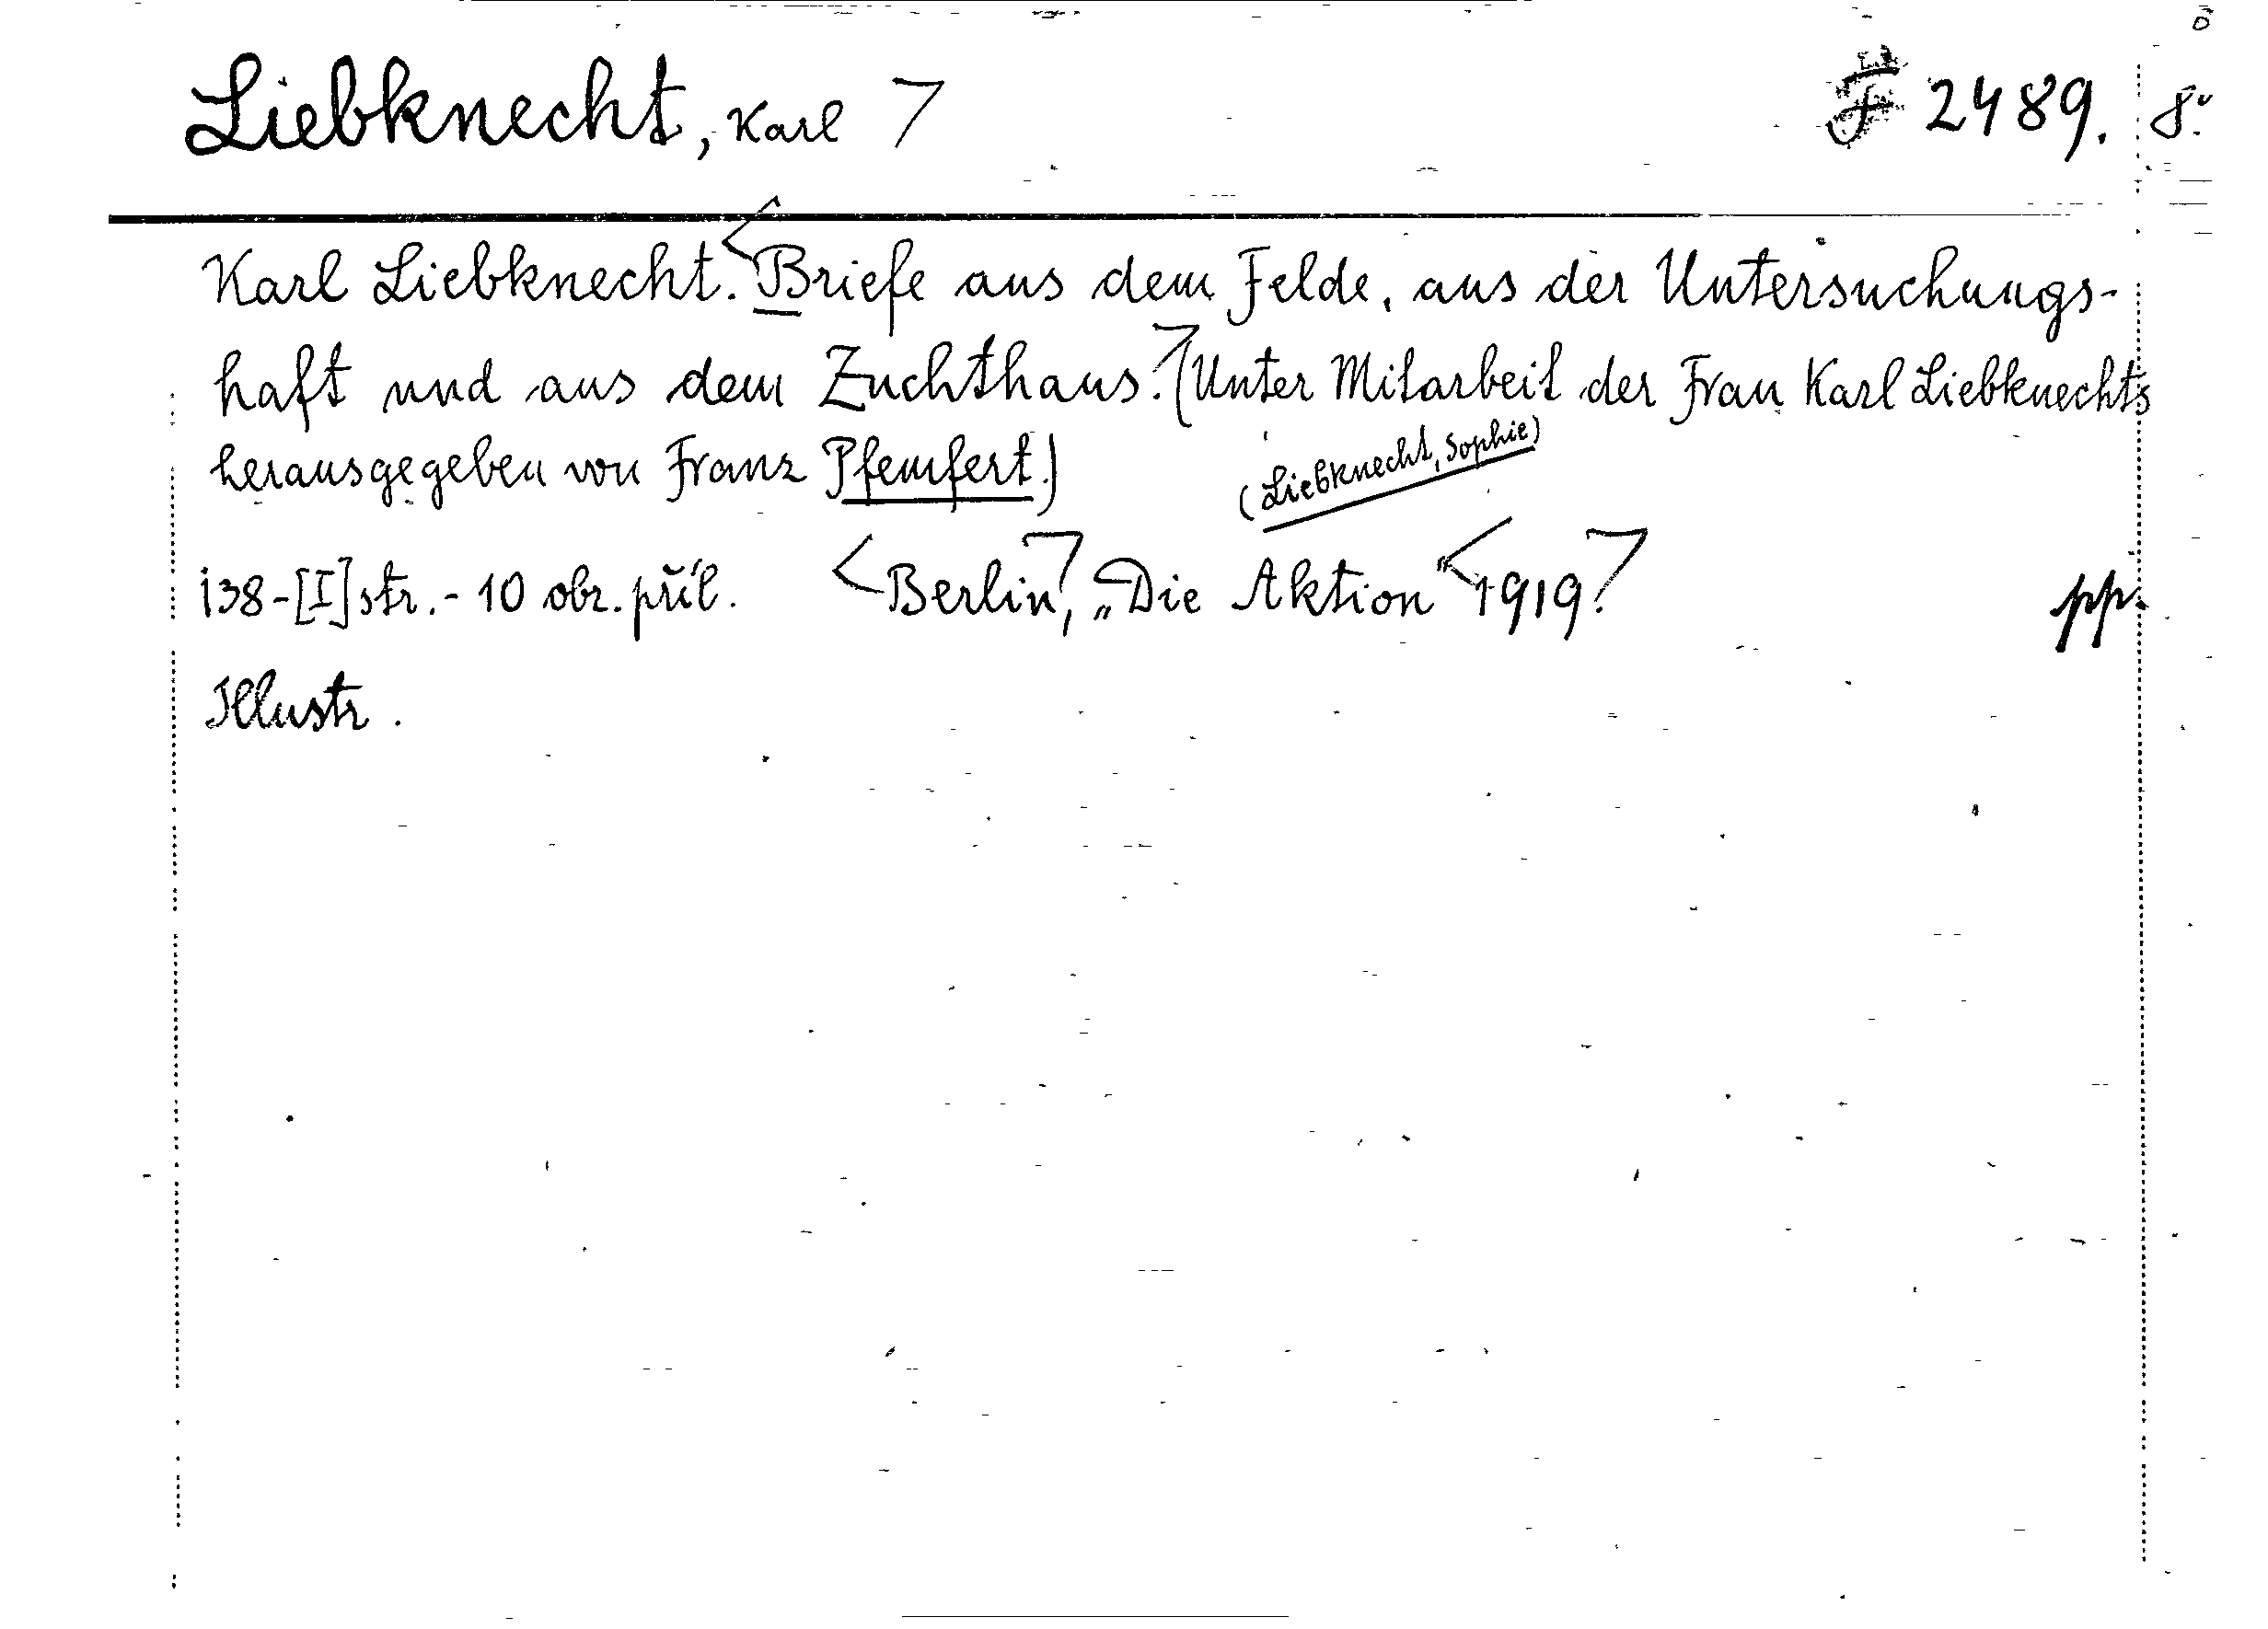 Liebknecht, Karl F 2489. 8°
Karl Liebknecht. Briefe aus dem Felde, aus der Untersuchungs-
haft und aus dem Zuchthaus. (Unter Mitarbeit der Frau Karl Liebknechts
herausgegeben von Franz Pfemfert.) (Liebknecht, Sophie)
138-[I] str. - 10 obr. příl. Berlin, „Die Aktion“ 1919. pp.
Illustr.